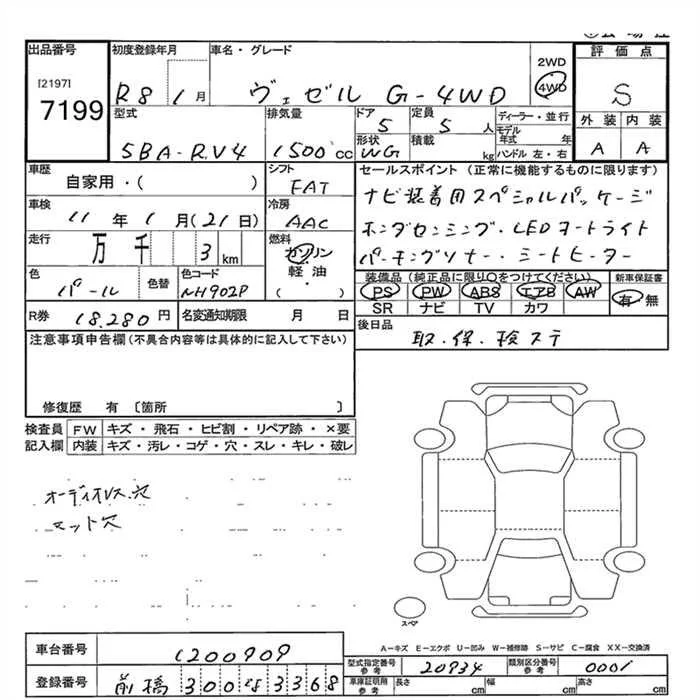 出品番号 初度登録年月 車名・グレード 2WD 評価点
[2197] 7199 R8 1月 ヴェゼル G-4WD 4WD S
型式 排気量 ドア 定員 ディーラー・並行 外装 内装
5BA-RV4 1500cc 5 5人 モデル年式 年 A A
形状 積載 WG kg ハンドル 左・右
車歴 シフト セールスポイント(正常に機能するものに限ります)
自家用・( ) FAT ナビ装着用スペシャルパッケージ
車検 冷房
11年1月(21日) AAC ホンダセンシング・LEDオートライト
走行 燃料
万 千 3 km ガソリン 軽油 ( ) パーキングソナー・シートヒーター
色 色替 色コード 装備品(純正品に限り〇をつけてください) 新車保証書
パール NH902P PS PW ABS エアB AW 有・無
SR ナビ TV カワ
R券 18,280円 名変通知期限 月 日 後日品
注意事項申告欄(不具合内容等は具体的に記入して下さい) 取・保・検ステ
修復歴 有〔箇所 〕
検査員 FW キズ・飛石・ヒビ割・リペア跡・×要
記入欄 内装 キズ・汚レ・コゲ・穴・スレ・キレ・破レ
オーディオレス穴
マット穴
スペア
A―キズ E―エクボ U―凹み W―補修跡 S―サビ C―腐食 XX―交換済
車台番号 1200909 型式指定番号 参考 20934 類別区分番号 参考 0001
登録番号 前橋300な3368 車庫証明用 参考 長さ cm 幅 cm 高さ cm